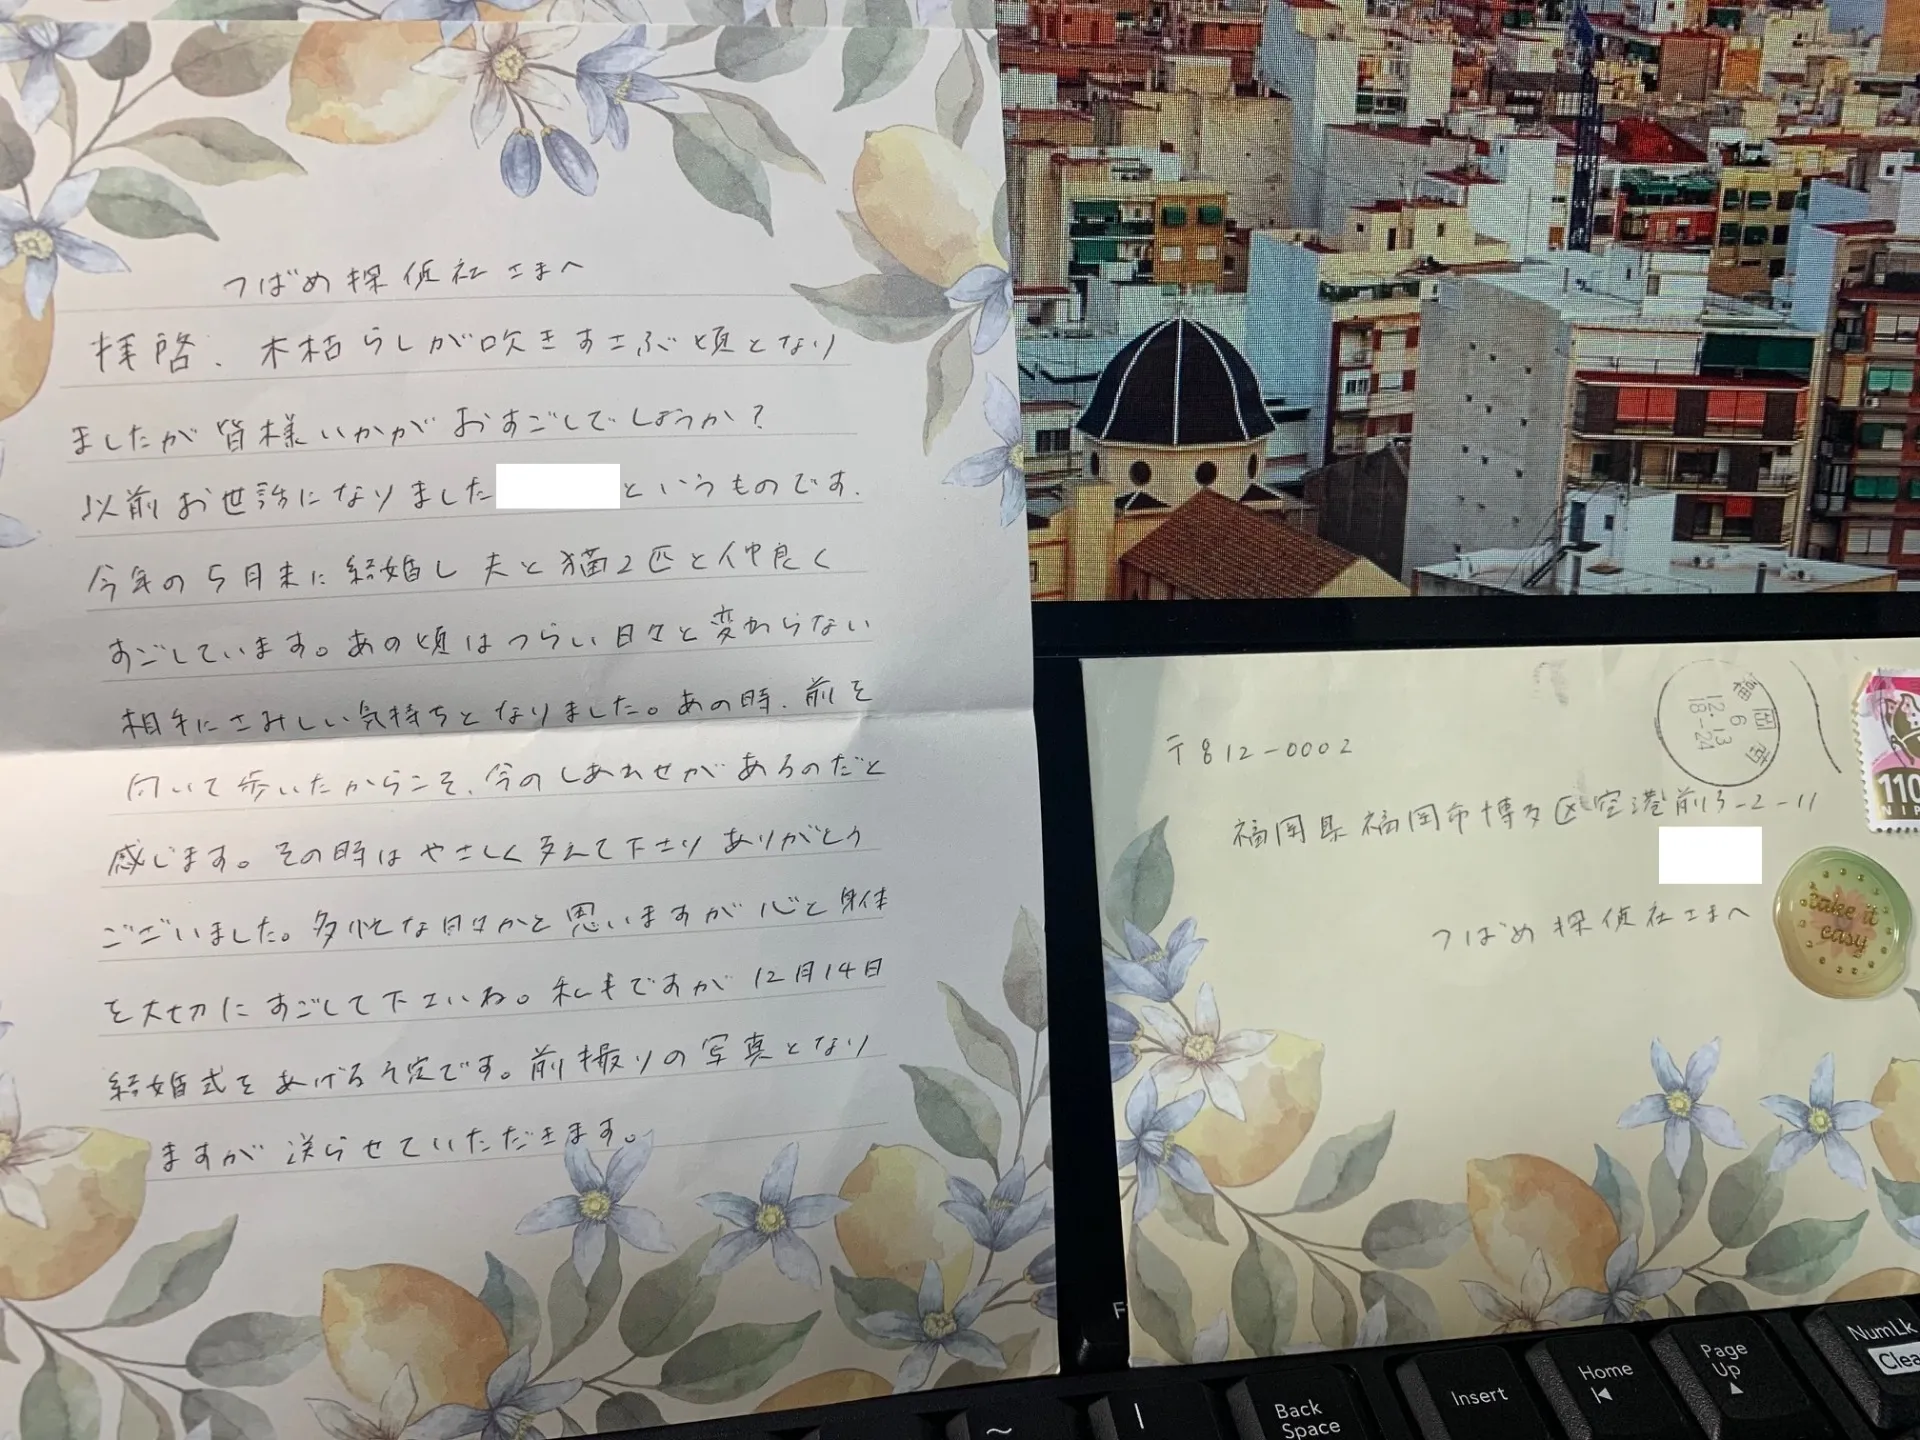 つばめ探偵社さまへ
拝啓、木枯らしが吹きすさぶ頃となり
ましたが皆様いかがおすごしでしょうか?
以前お世話になりました
というものです.
今年の5月末に結婚し夫と猫2匹と仲良く
すごしています。あの頃はつらい日々と変わらない
相手にさみしい気持ちとなりました。あの時、前を
向いて歩いたからこそ、今のしあわせがあるのだと
感じます。その時はやさしく支えて下さりありがとう
ございました。多忙な日々かと思いますが心と身体
を大切にすごして下さいね。私事ですが12月14日
結婚式をあげる予定です。前撮りの写真となり
ますが送らせていただきます。
福岡南
6
12.13
18-24
110
NIP
〒812-0002
福岡県福岡市博多区空港前3-2-11
つばめ探偵社さまへ
take it
easy
F
~
|
Back
Space
Insert
Home
Page
Up
NumLk
Clea